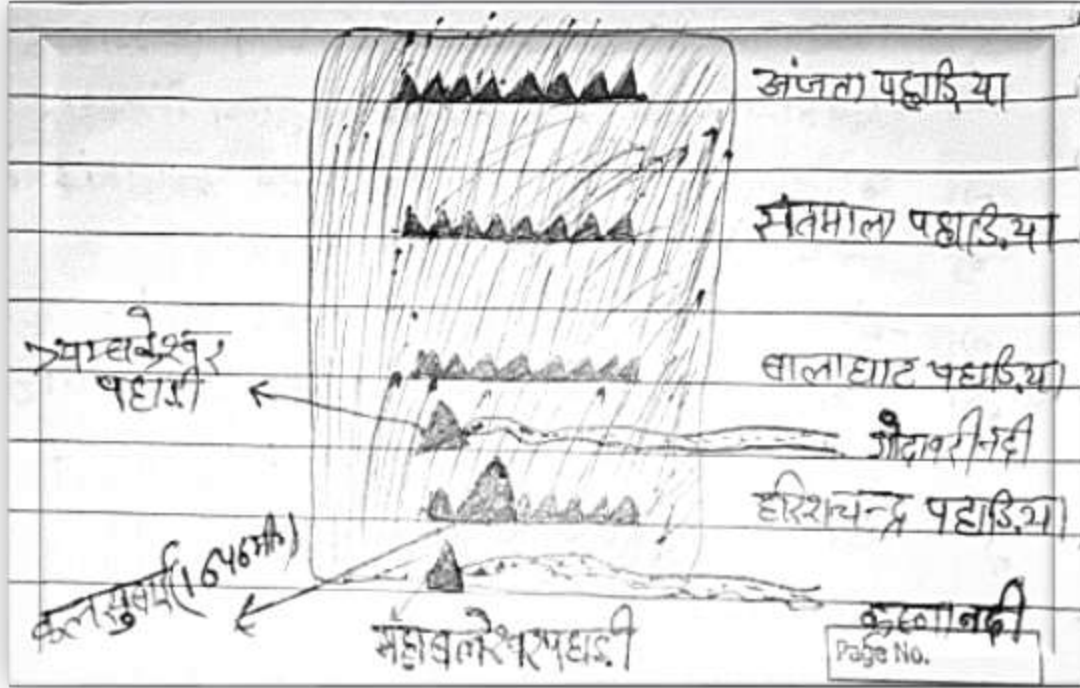 अंजता पहाडिया
सतमाला पहाडिया
त्र्यम्बकेश्वर
पहाडी
बालाघाट पहाडिया
गोदावरी नदी
हरिशचन्द्र पहाडिया
कलसुबाई (1646मी)
महाबलेश्वर पहाडी
कृष्णा नदी
Page No.